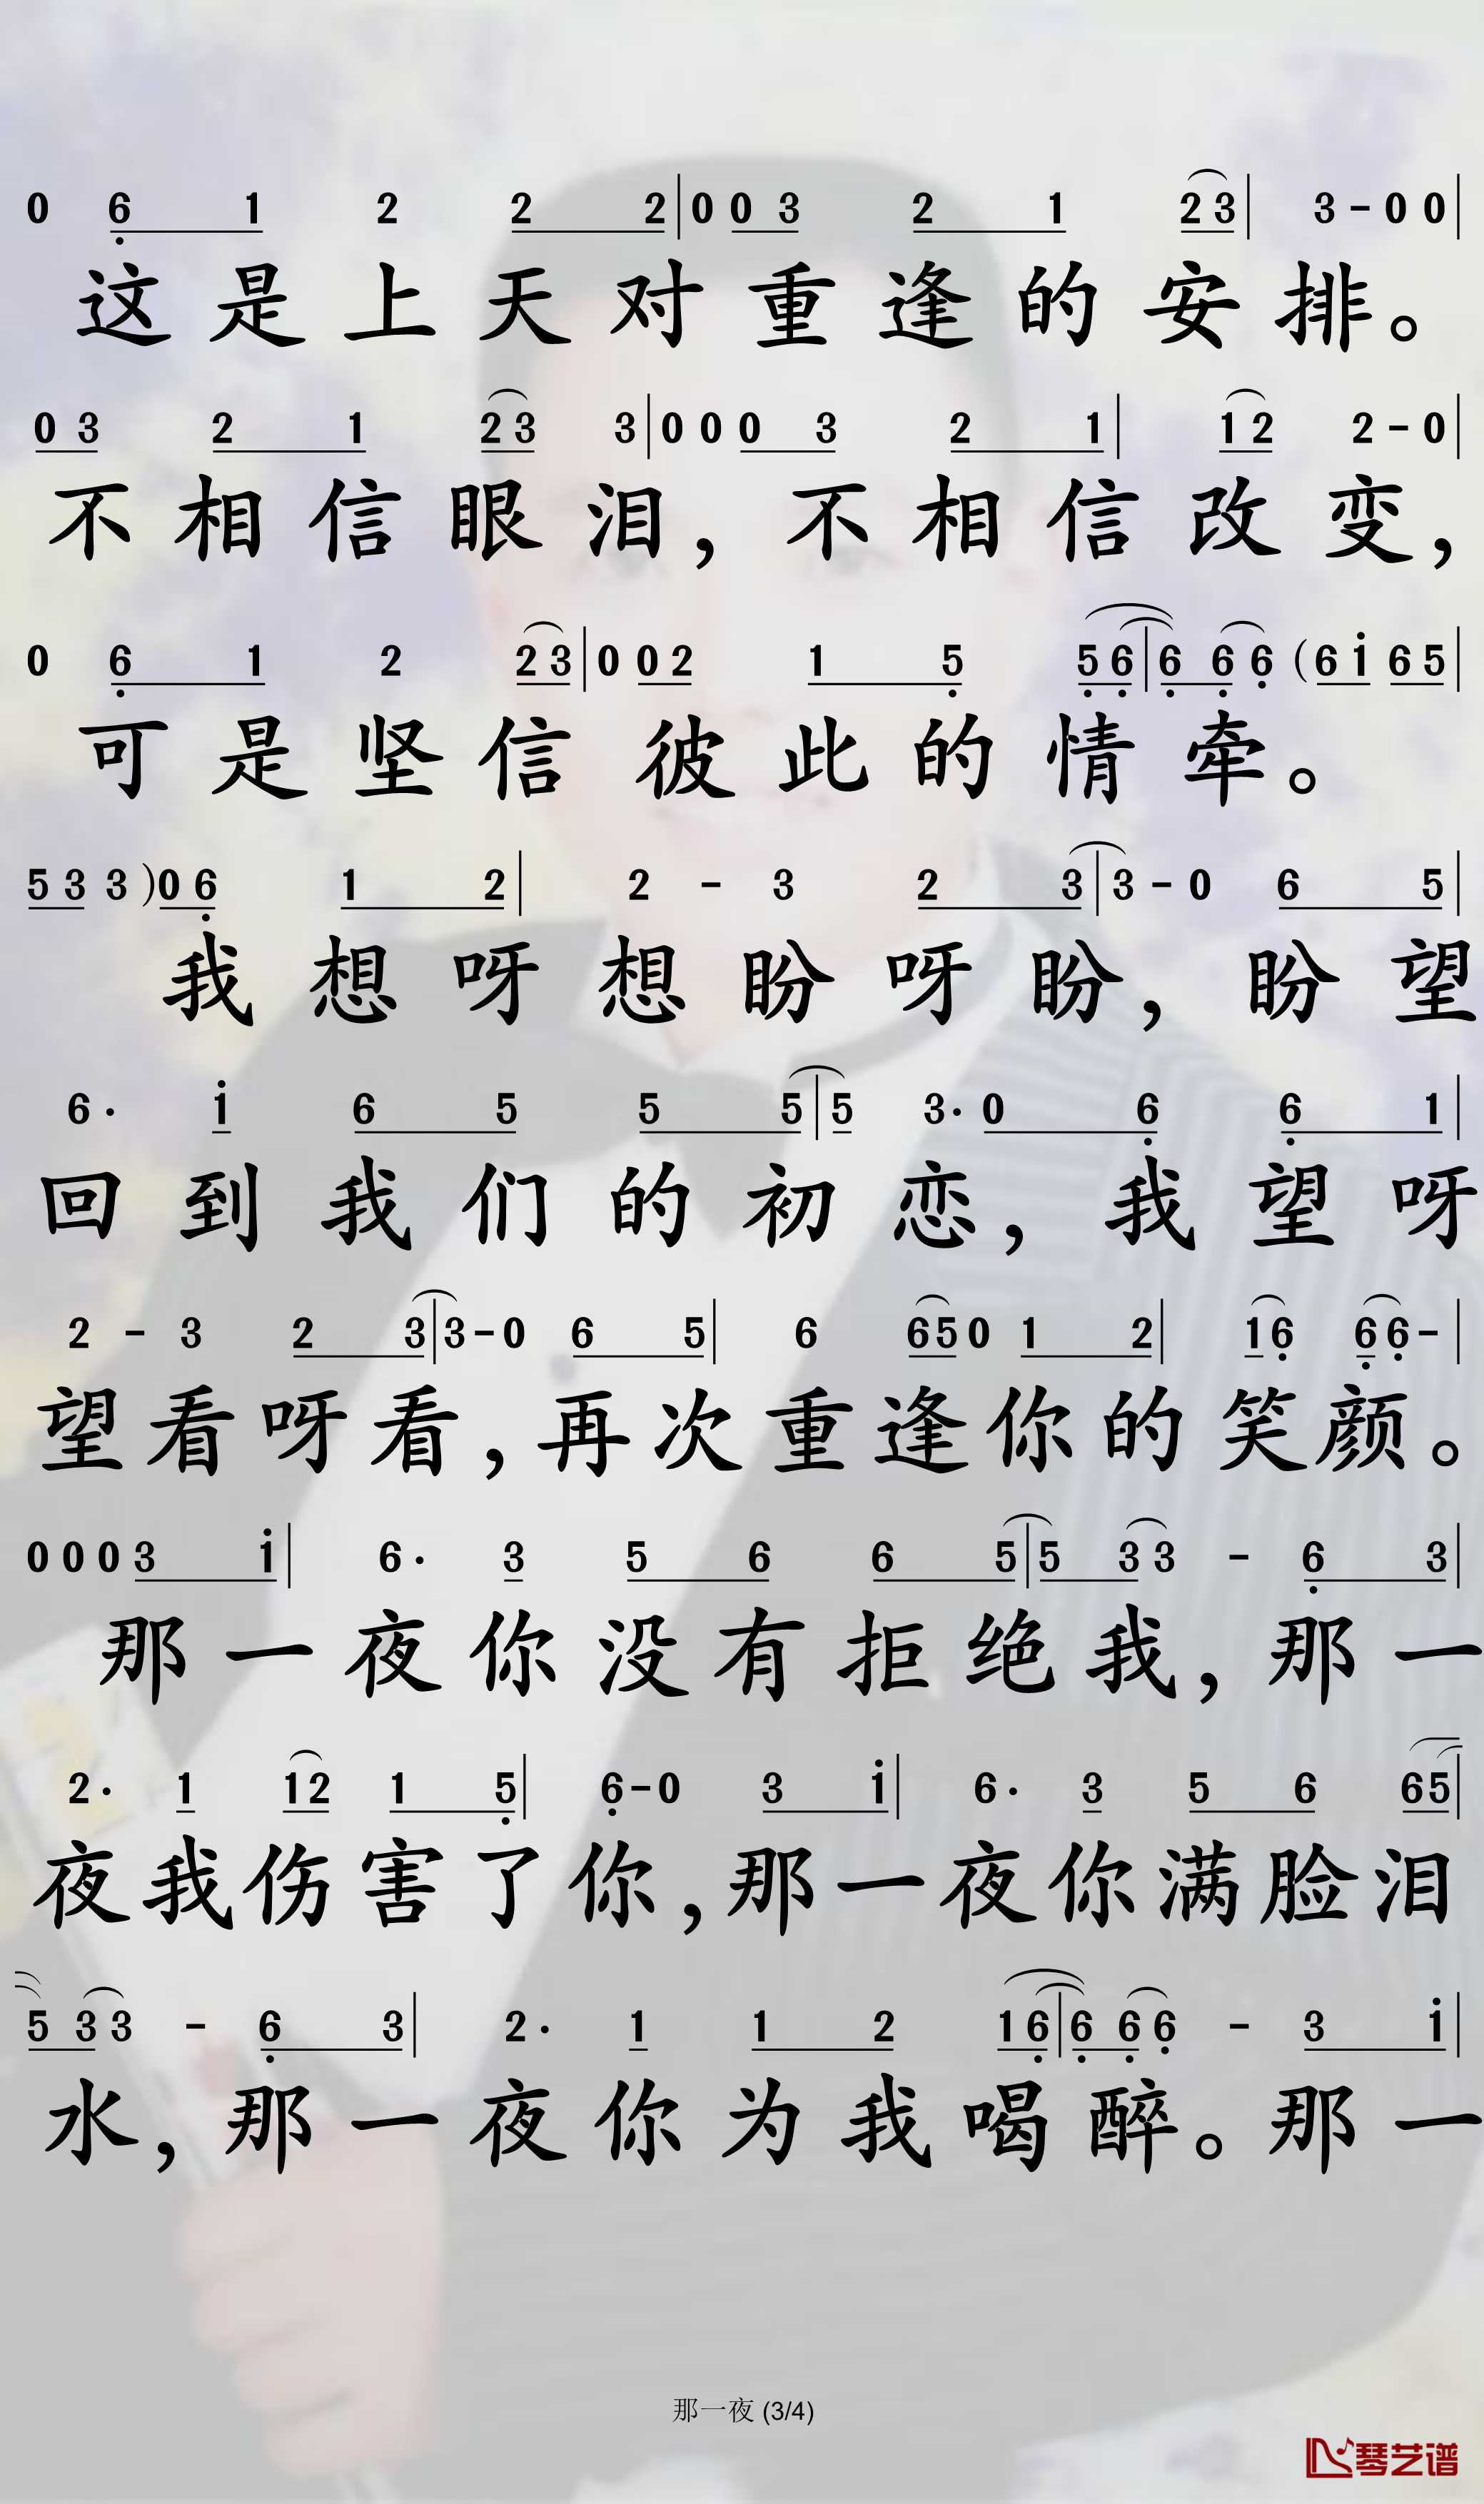 0 6 1 2 2 2 | 0 0 3 2 1 2 3 | 3 - 0 0 |
这是上天对重逢的安排。
0 3 2 1 2 3 3 | 0 0 0 3 2 1 | 1 2 2 - 0 |
不相信眼泪，不相信改变，
0 6 1 2 2 3 | 0 0 2 1 5 5 6 | 6 6 6 (6 i 6 5 |
可是坚信彼此的情牵。
5 3 3 ) 0 6 1 2 | 2 - 3 2 3 | 3 - 0 6 5 |
我想呀想盼呀盼，盼望
6· i 6 5 5 5 | 5 3· 0 6 6 1 |
回到我们的初恋，我望呀
2 - 3 2 3 | 3 - 0 6 5 | 6 6 5 0 1 2 | 1 6 6 6 - |
望看呀看，再次重逢你的笑颜。
0 0 0 3 i | 6· 3 5 6 6 5 | 5 3 3 - 6 3 |
那一夜你没有拒绝我，那一
2· 1 1 2 1 5 | 6 - 0 3 i | 6· 3 5 6 6 5 |
夜我伤害了你，那一夜你满脸泪
5 3 3 - 6 3 | 2· 1 1 2 1 6 | 6 6 6 - 3 i |
水，那一夜你为我喝醉。那一
那一夜 (3/4)
琴艺谱